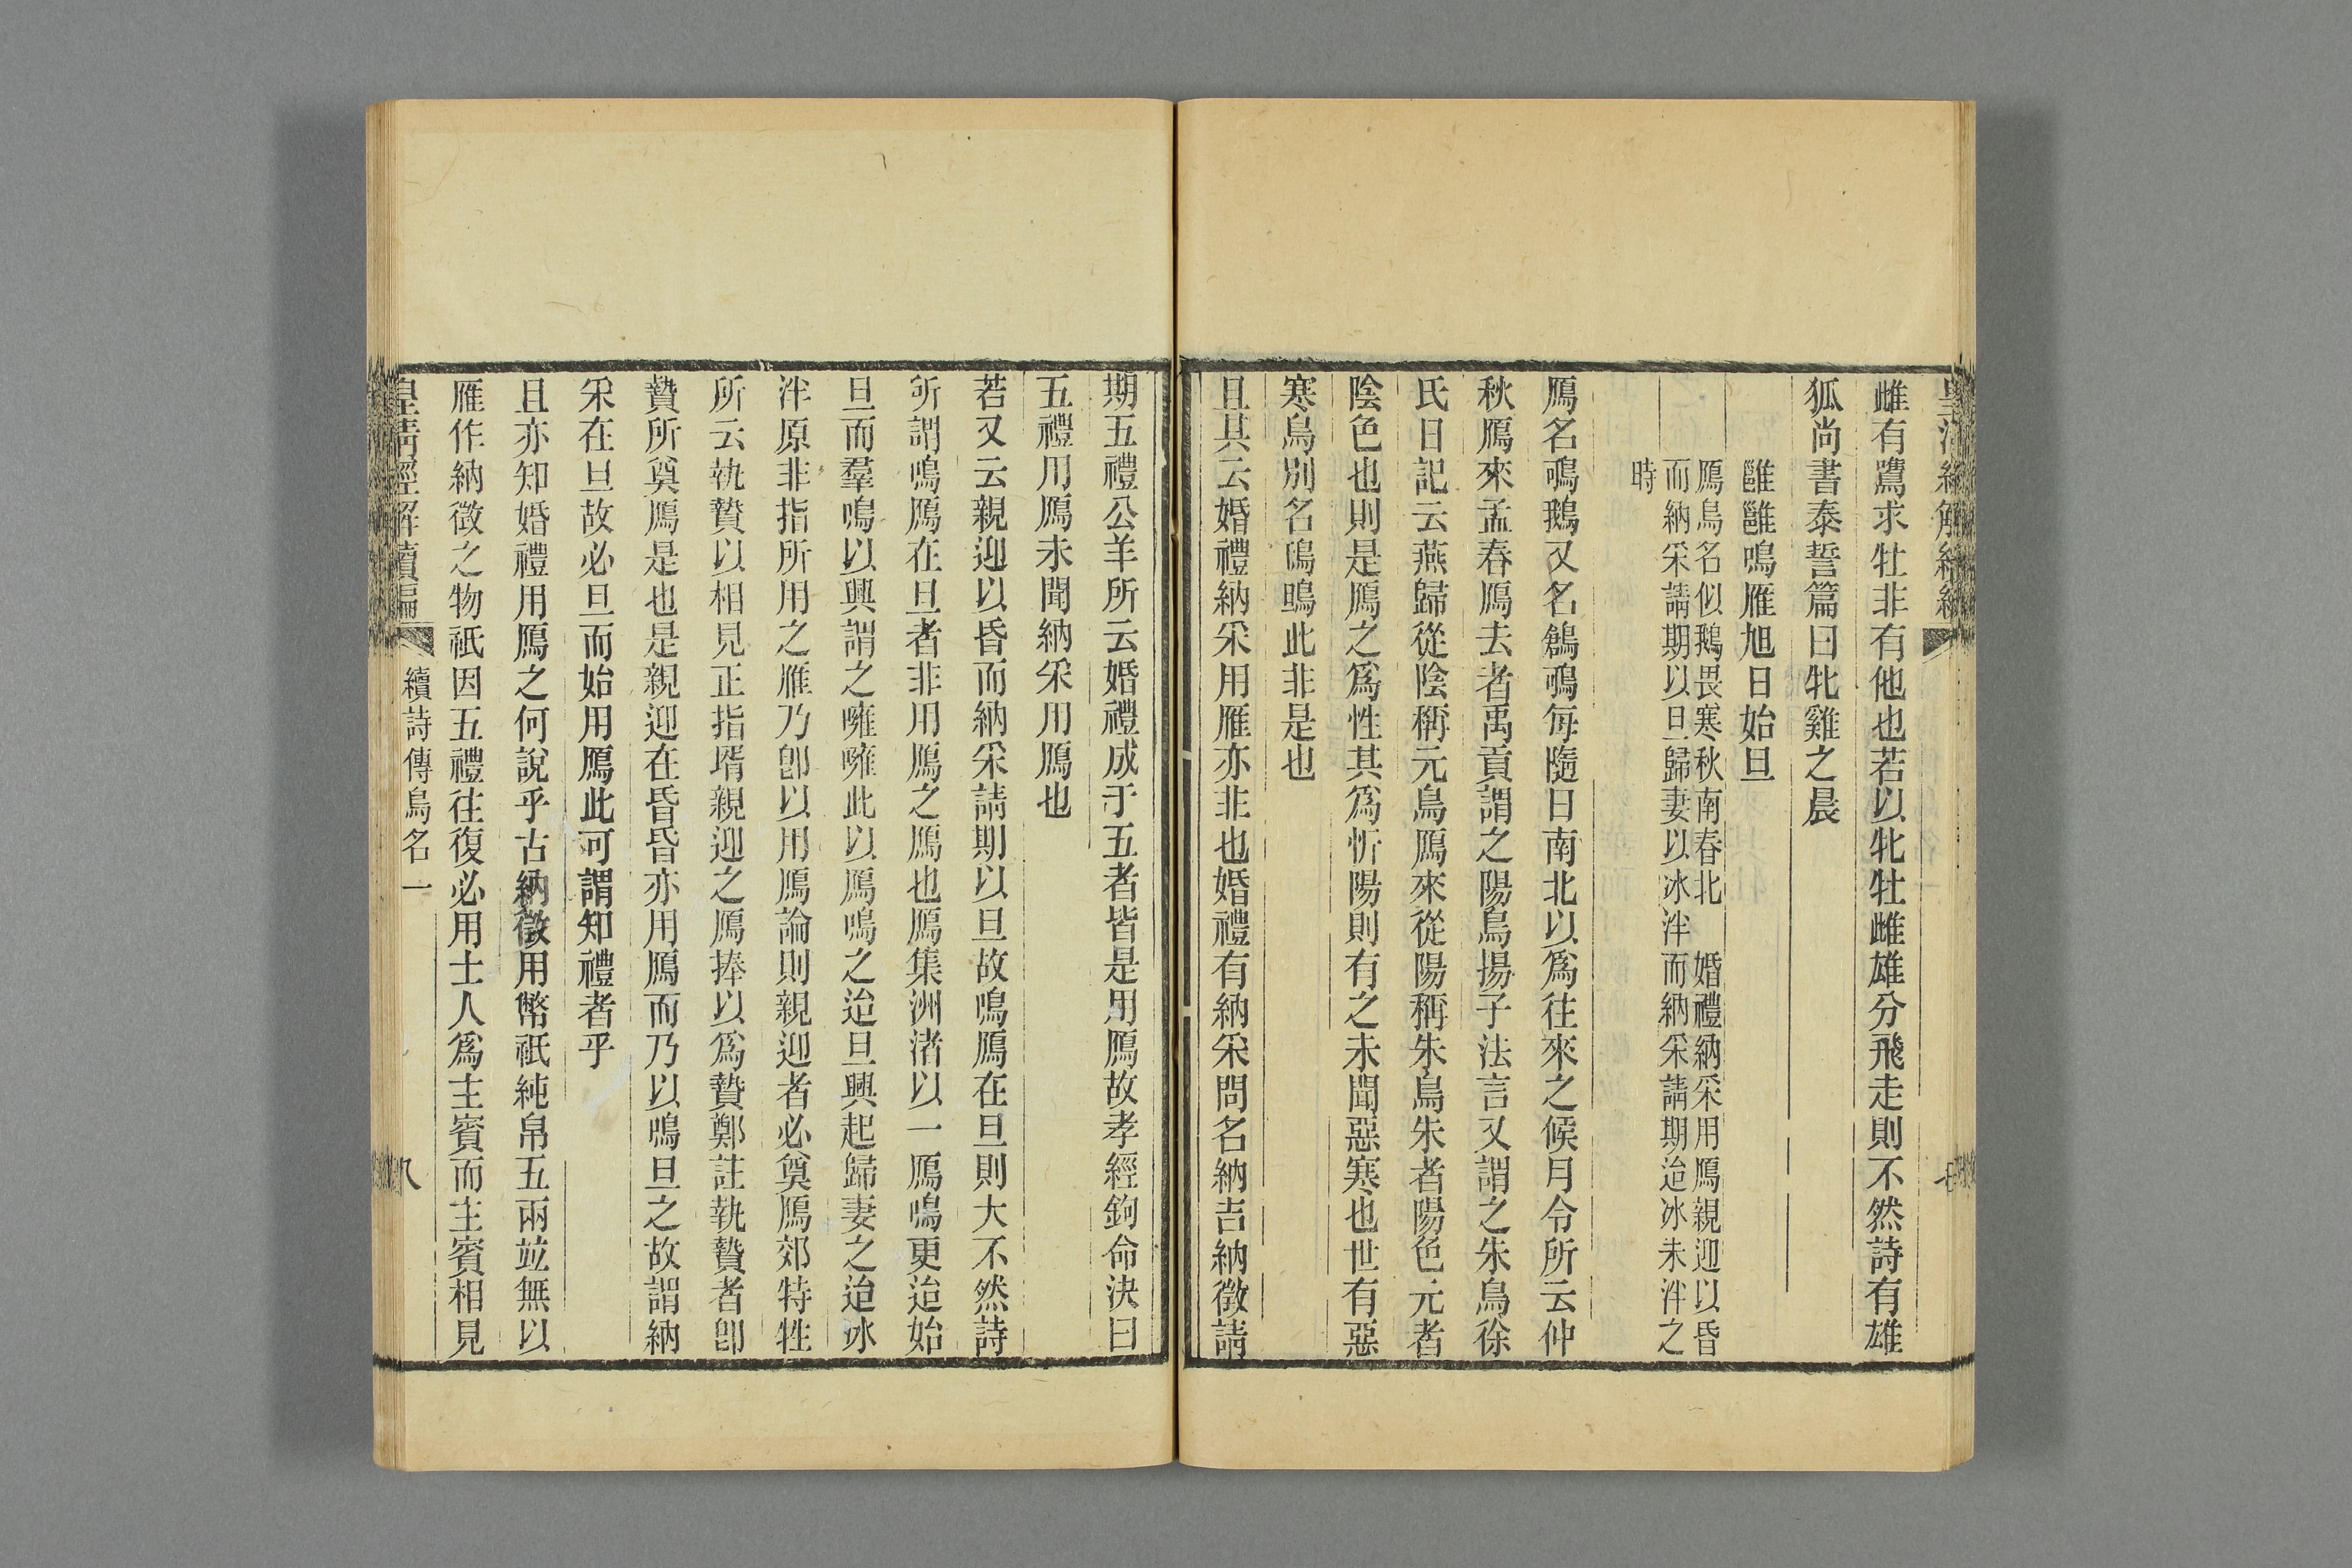 皇清經解續編
七
雌有鷕求牡非有他也若以牝牡雌雄分飛走則不然詩有雄
狐尚書泰誓篇曰牝雞之晨
雝雝鳴雁旭日始旦
鴈鳥名似鵝畏寒秋南春北　婚禮納采用鴈親迎以昏
而納采請期以旦歸妻以冰泮而納采請期迨冰未泮之
時
鴈名鳱鵝又名鶬鳱每隨日南北以爲往來之候月令所云仲
秋鴈來孟春鴈去者禹貢謂之陽鳥揚子法言又謂之朱鳥徐
氏日記云燕歸從陰稱元鳥鴈來從陽稱朱鳥朱者陽色元者
陰色也則是鴈之爲性其爲忻陽則有之未聞惡寒也世有惡
寒鳥別名鳱鴠此非是也
且其云婚禮納采用雁亦非也婚禮有納采問名納吉納徵請
期五禮公羊所云婚禮成于五者皆是用鴈故孝經鉤命決曰
五禮用鴈未聞納采用鴈也
若又云親迎以昏而納采請期以旦故鳴鴈在旦則大不然詩
所謂鳴鴈在旦者非用鴈之鴈也鴈集洲渚以一鴈鳴更迨始
旦而羣鳴以興謂之嗈嗈此以鴈鳴之迨旦興起歸妻之迨冰
泮原非指所用之雁乃卽以用鴈論則親迎者必奠鴈郊特牲
所云執贄以相見正指壻親迎之鴈捧以爲贄鄭註執贄者卽
贄所奠鴈是也是親迎在昏昏亦用鴈而乃以鳴旦之故謂納
采在旦故必旦而始用鴈此可謂知禮者乎
且亦知婚禮用鴈之何說乎古納徵用幣祇純帛五兩並無以
雁作納徵之物祇因五禮往復必用士人爲主賓而主賓相見
皇清經解續編
續詩傳鳥名一
八